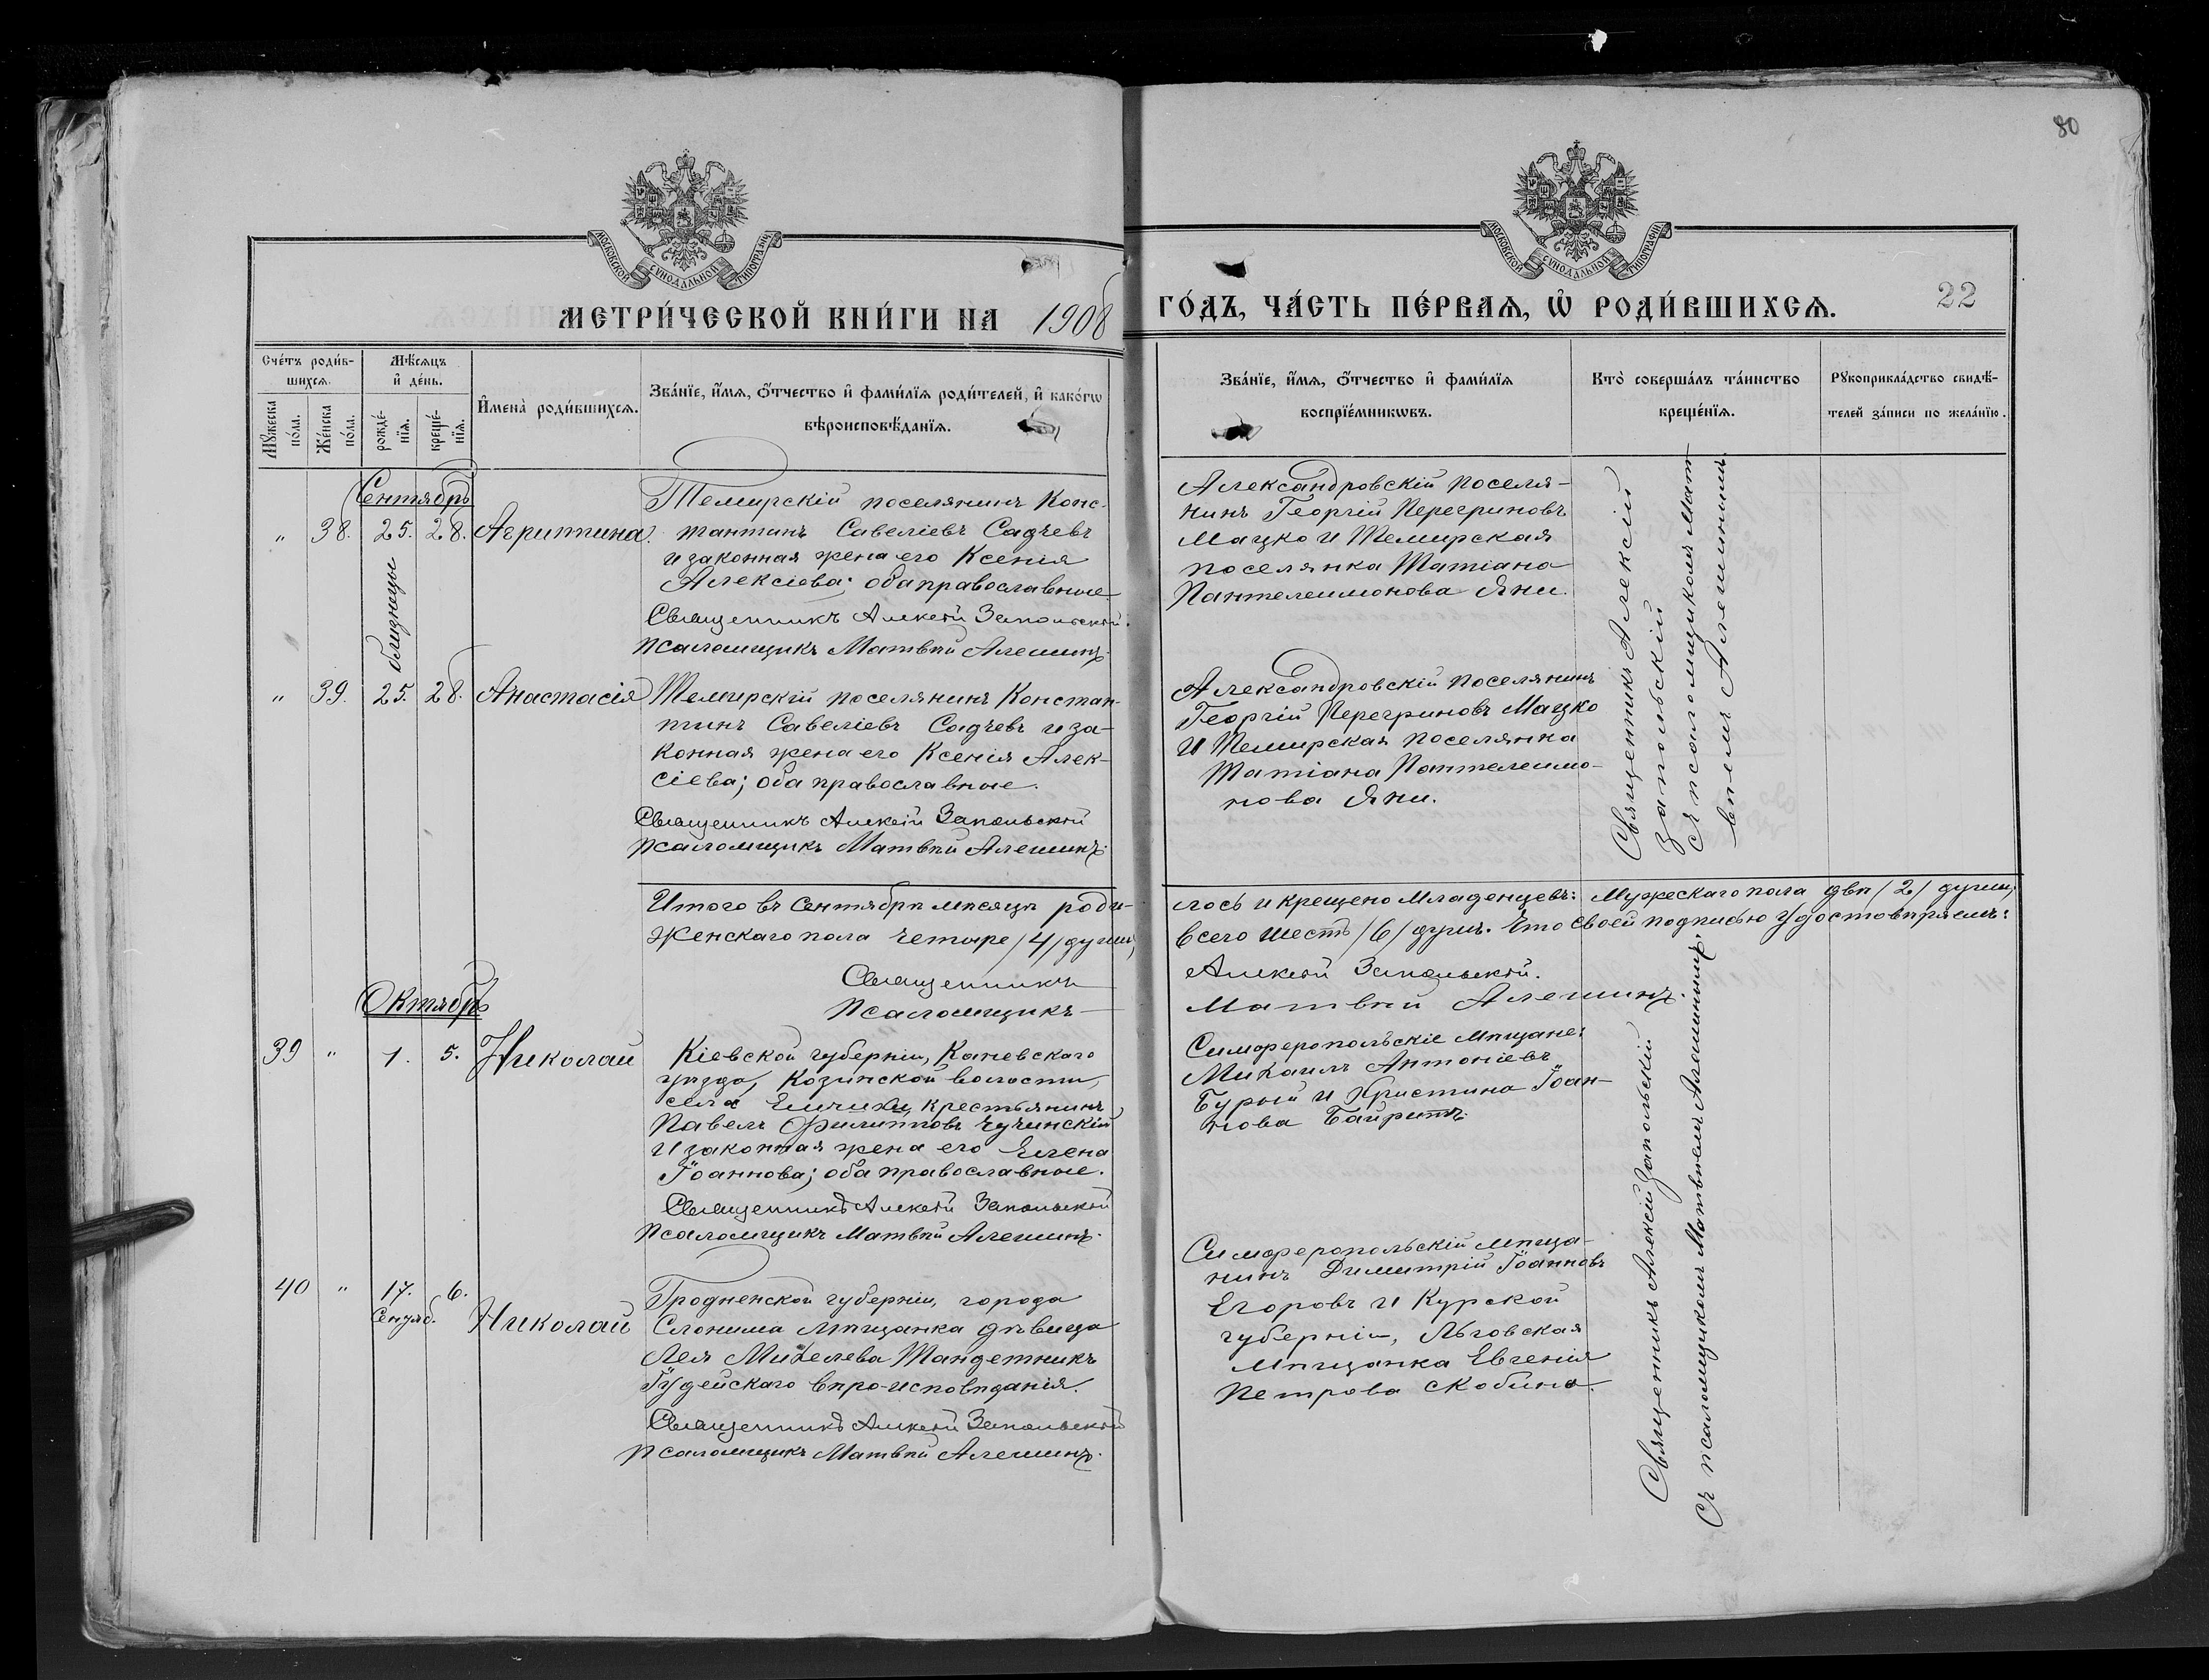 80
МОСКОВСКОЙ СУНОДАЛЬНОЙ ТИПОГРАФIИ
МОСКОВСКОЙ СУНОДАЛЬНОЙ ТИПОГРАФIИ
МЕТРИ́ЧЕСКОЙ КНИ́ГИ НА 1908
ГО́ДЪ, ЧА́СТЬ ПЕ́РВАѦ, Ѡ РОДИ́ВШИХСѦ.
22
Сче́тъ роди́в-
шихсѧ.
Мꙋжеска по́ла.
Же́нска по́ла.
Мѣ́сѧцъ
и҆ де́нь.
рожде́-
нїѧ.
креще́-
нїѧ.
И҆мена̀ роди́вшихсѧ.
Зва́нїе, и҆́мѧ, ѻ҆́тчество и҆ фами́лїѧ роди́телей, и҆ како́гѡ
вѣроисповѣ́данїѧ.
Зва́нїе, и҆́мѧ, ѻ҆́тчество и҆ фами́лїѧ
воспрїе́мникѡвъ.
Кто̀ соверша́лъ та́инство
креще́нїѧ.
Рꙋкоприкла́дство свидѣ́-
телей за́писи по жела́нїю.
Сентябрь
" 38. 25. 28. Агриппина.
близнецы
Темирскій поселянинъ Конс-
тантинъ Савеліевъ Садчевъ
и законная жена его Ксенія
Алексіева; оба православные.
Священникъ Алексій Запольскій.
Псаломщикъ Матвѣй Алешинъ.
Александровскій поселя-
нинъ Георгій Перегриновъ
Мацко и Темирская
поселянка Татіана
Пантелеимонова Яни.
" 39. 25. 28. Анастасія
Темирскій поселянинъ Констан-
тинъ Савеліевъ Садчевъ и за-
конная жена его Ксенія Алек-
сіева; оба православные.
Священникъ Алексій Запольскій
Псаломщикъ Матвѣй Алешинъ.
Александровскій поселянинъ
Георгій Перегриновъ Мацко
и Темирская поселянка
Татіана Пантелеимо-
нова Яни.
Священникъ Алексій
Запольскій
съ псаломщикомъ Мат-
вѣемъ Алешинымъ.
Итого въ Сентябрѣ мѣсяцѣ роди-
лось и крещено младенцевъ: Мужескаго пола двѣ /2/ души,
Женскаго пола четыре /4/ души,
всего шесть /6/ душъ. Что своей подписью удостовѣряемъ:
Священникъ Алексій Запольскій.
Псаломщикъ Матвѣй Алешинъ.
Октябрь
39 " 1. 5. Николай
Кіевской губерніи, Каневскаго
уѣзда, Козинской волости,
села Емчихи крестьянинъ
Павелъ Филипповъ Чучинскій
и законная жена его Елена
Іоаннова; оба православные.
Священникъ Алексій Запольскій
Псаломщикъ Матвѣй Алешинъ.
Симферопольскіе мѣщане:
Михаилъ Антоніевъ
Бурый и Христина Іоан-
нова Байритъ.
40 " 17. 6.
Сентяб.
Николай
Гродненской губерніи, города
Слонима мѣщанка дѣвица
Лея Михелева Мандетникъ
Іудейскаго вѣро-исповѣданія.
Священникъ Алексій Запольскій
Псаломщикъ Матвѣй Алешинъ.
Симферопольскій мѣща-
нинъ Димитрій Іоанновъ
Егоровъ и Курской
губерніи, Льговская
мѣщанка Евгенія
Петрова Скобина.
Священникъ Алексій Запольскій
Съ псаломщикомъ Матвѣемъ Алешинымъ.